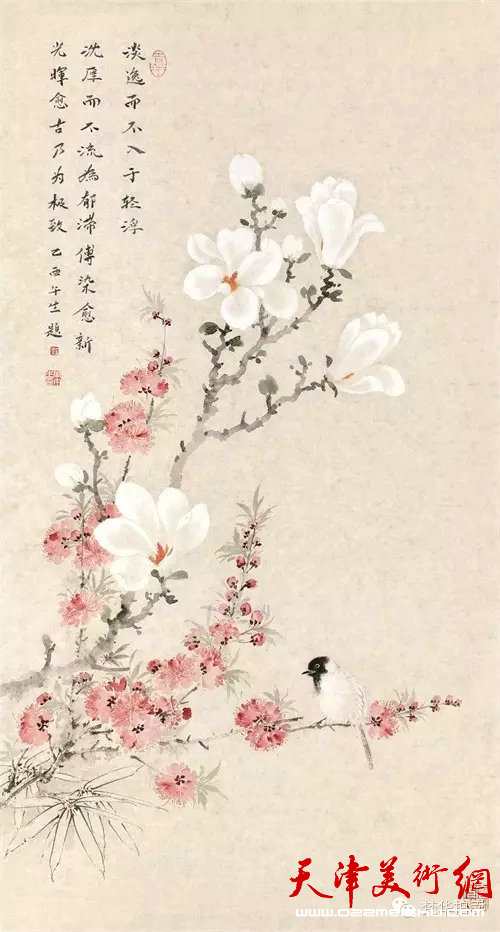 淡逸而不入于轻浮
沈厚而不流為郁滞傅染愈新
光暉愈古乃为极致 乙酉午生題
天津美術網